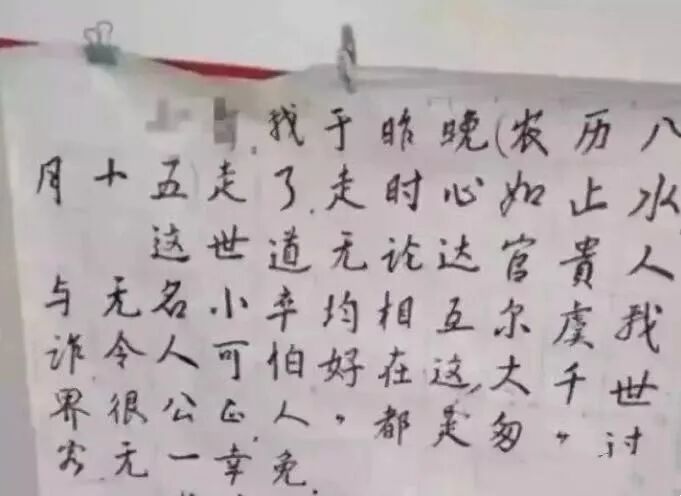 我于昨晚(农历八
月十五走了.走时心如止水
这世道无论达官贵人
与无名小卒均相互尔虞我
诈令人可怕好在这大千世
界很公正,人。都是匆〃讨
客无一幸免.